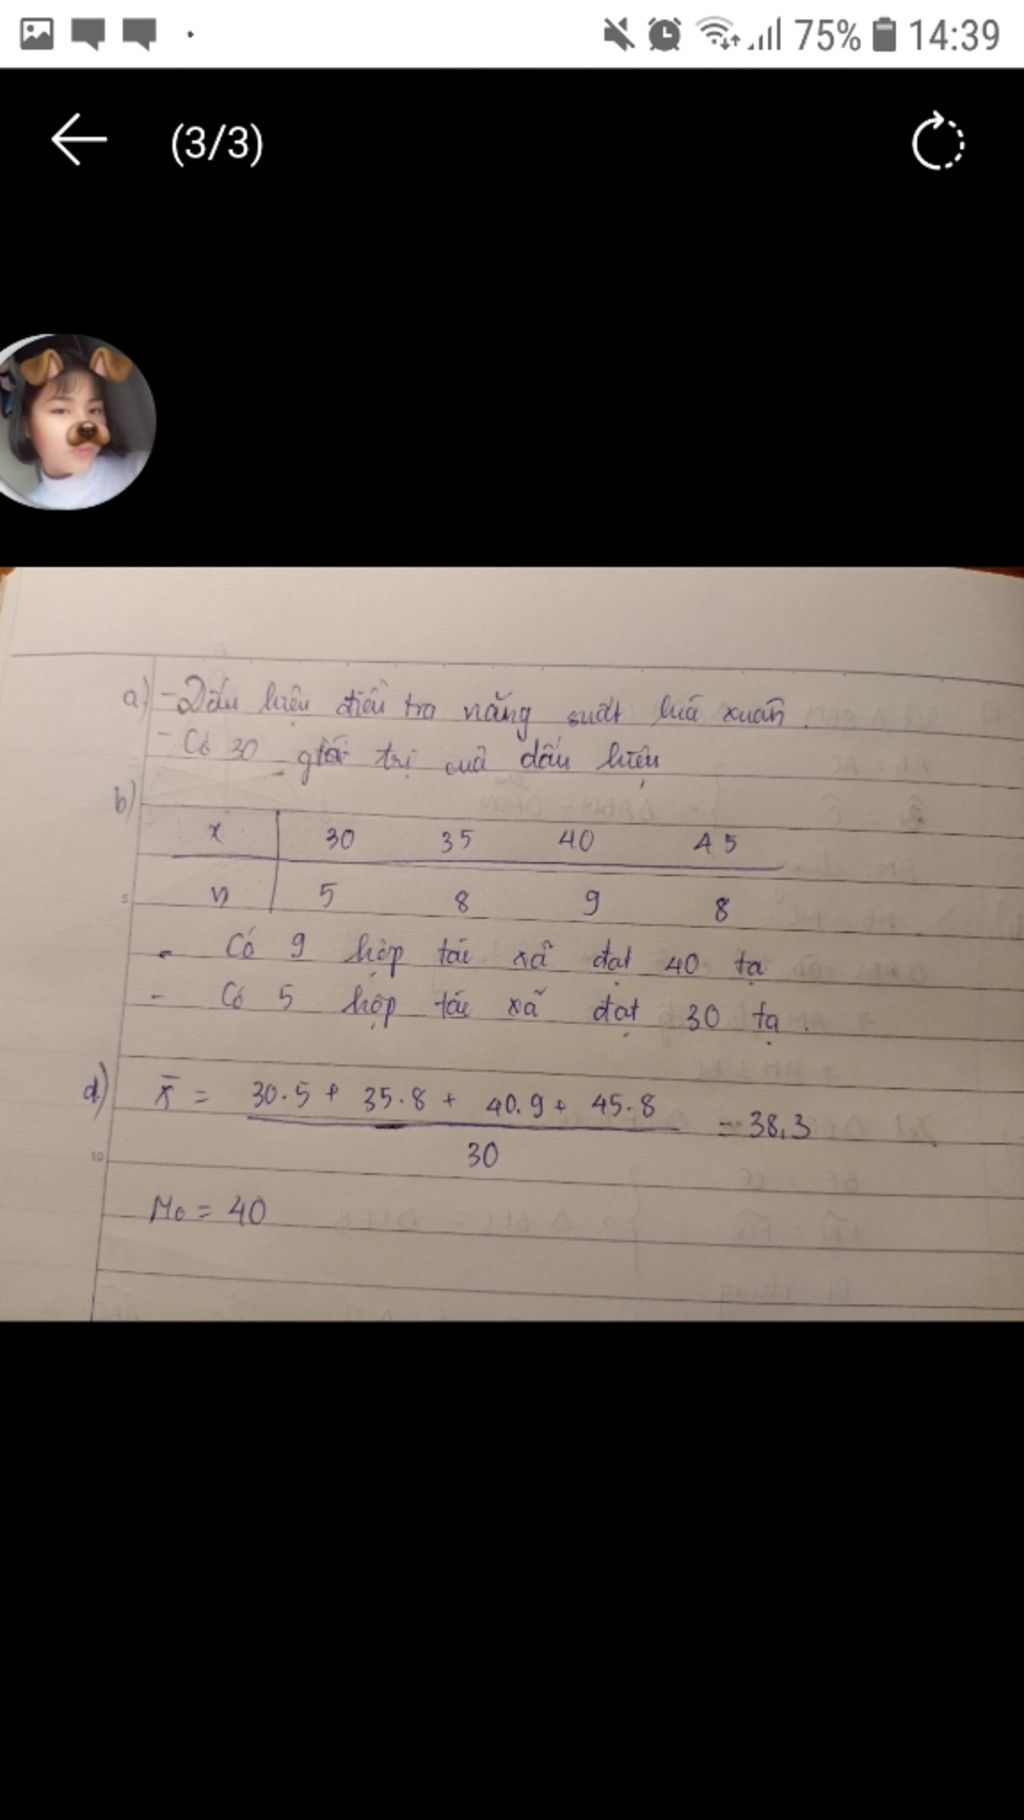 75% 14:39
(3/3)
a) - Dấu hiệu điều tra năng suất lúa xuân.
- Có 30 giá trị của dấu hiệu
b)
x 30 35 40 45
n 5 8 9 8
- Có 9 hợp tác xã đạt 40 tạ
- Có 5 hợp tác xã đạt 30 tạ.
d) x̄ = 30.5 + 35.8 + 40.9 + 45.8 = 38,3
30
Mo = 40